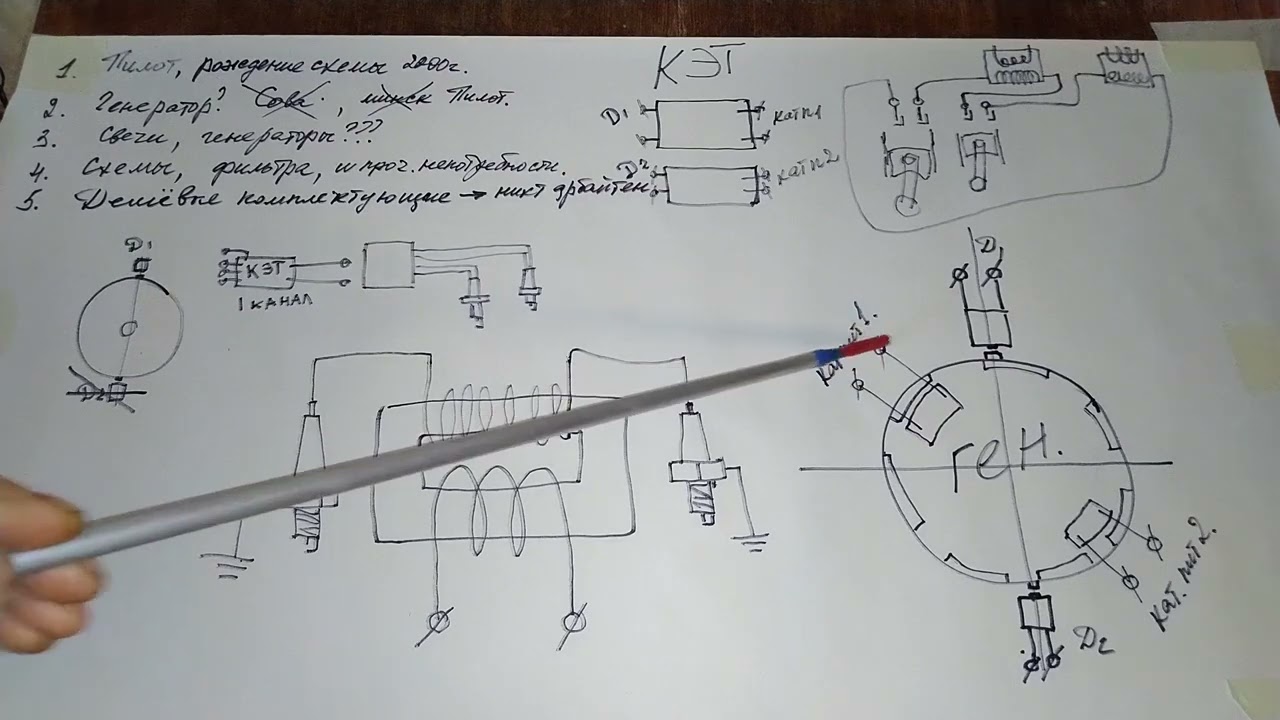 1. Пилот, рождение схемы 2000г.
2. Генератор? Сова, минск Пилот.
3. Свечи, генераторы???
4. Схемы, фильтра, и проч. непотребности.
5. Дешёвые комплектующие → никт арбайтен
КЭТ
Д1
кат п 1
Д2
кат п 2
Д1
Д2
КЭТ
1 КАНАЛ
Д
1.
ГЕН.
кат. пит 2.
Д2